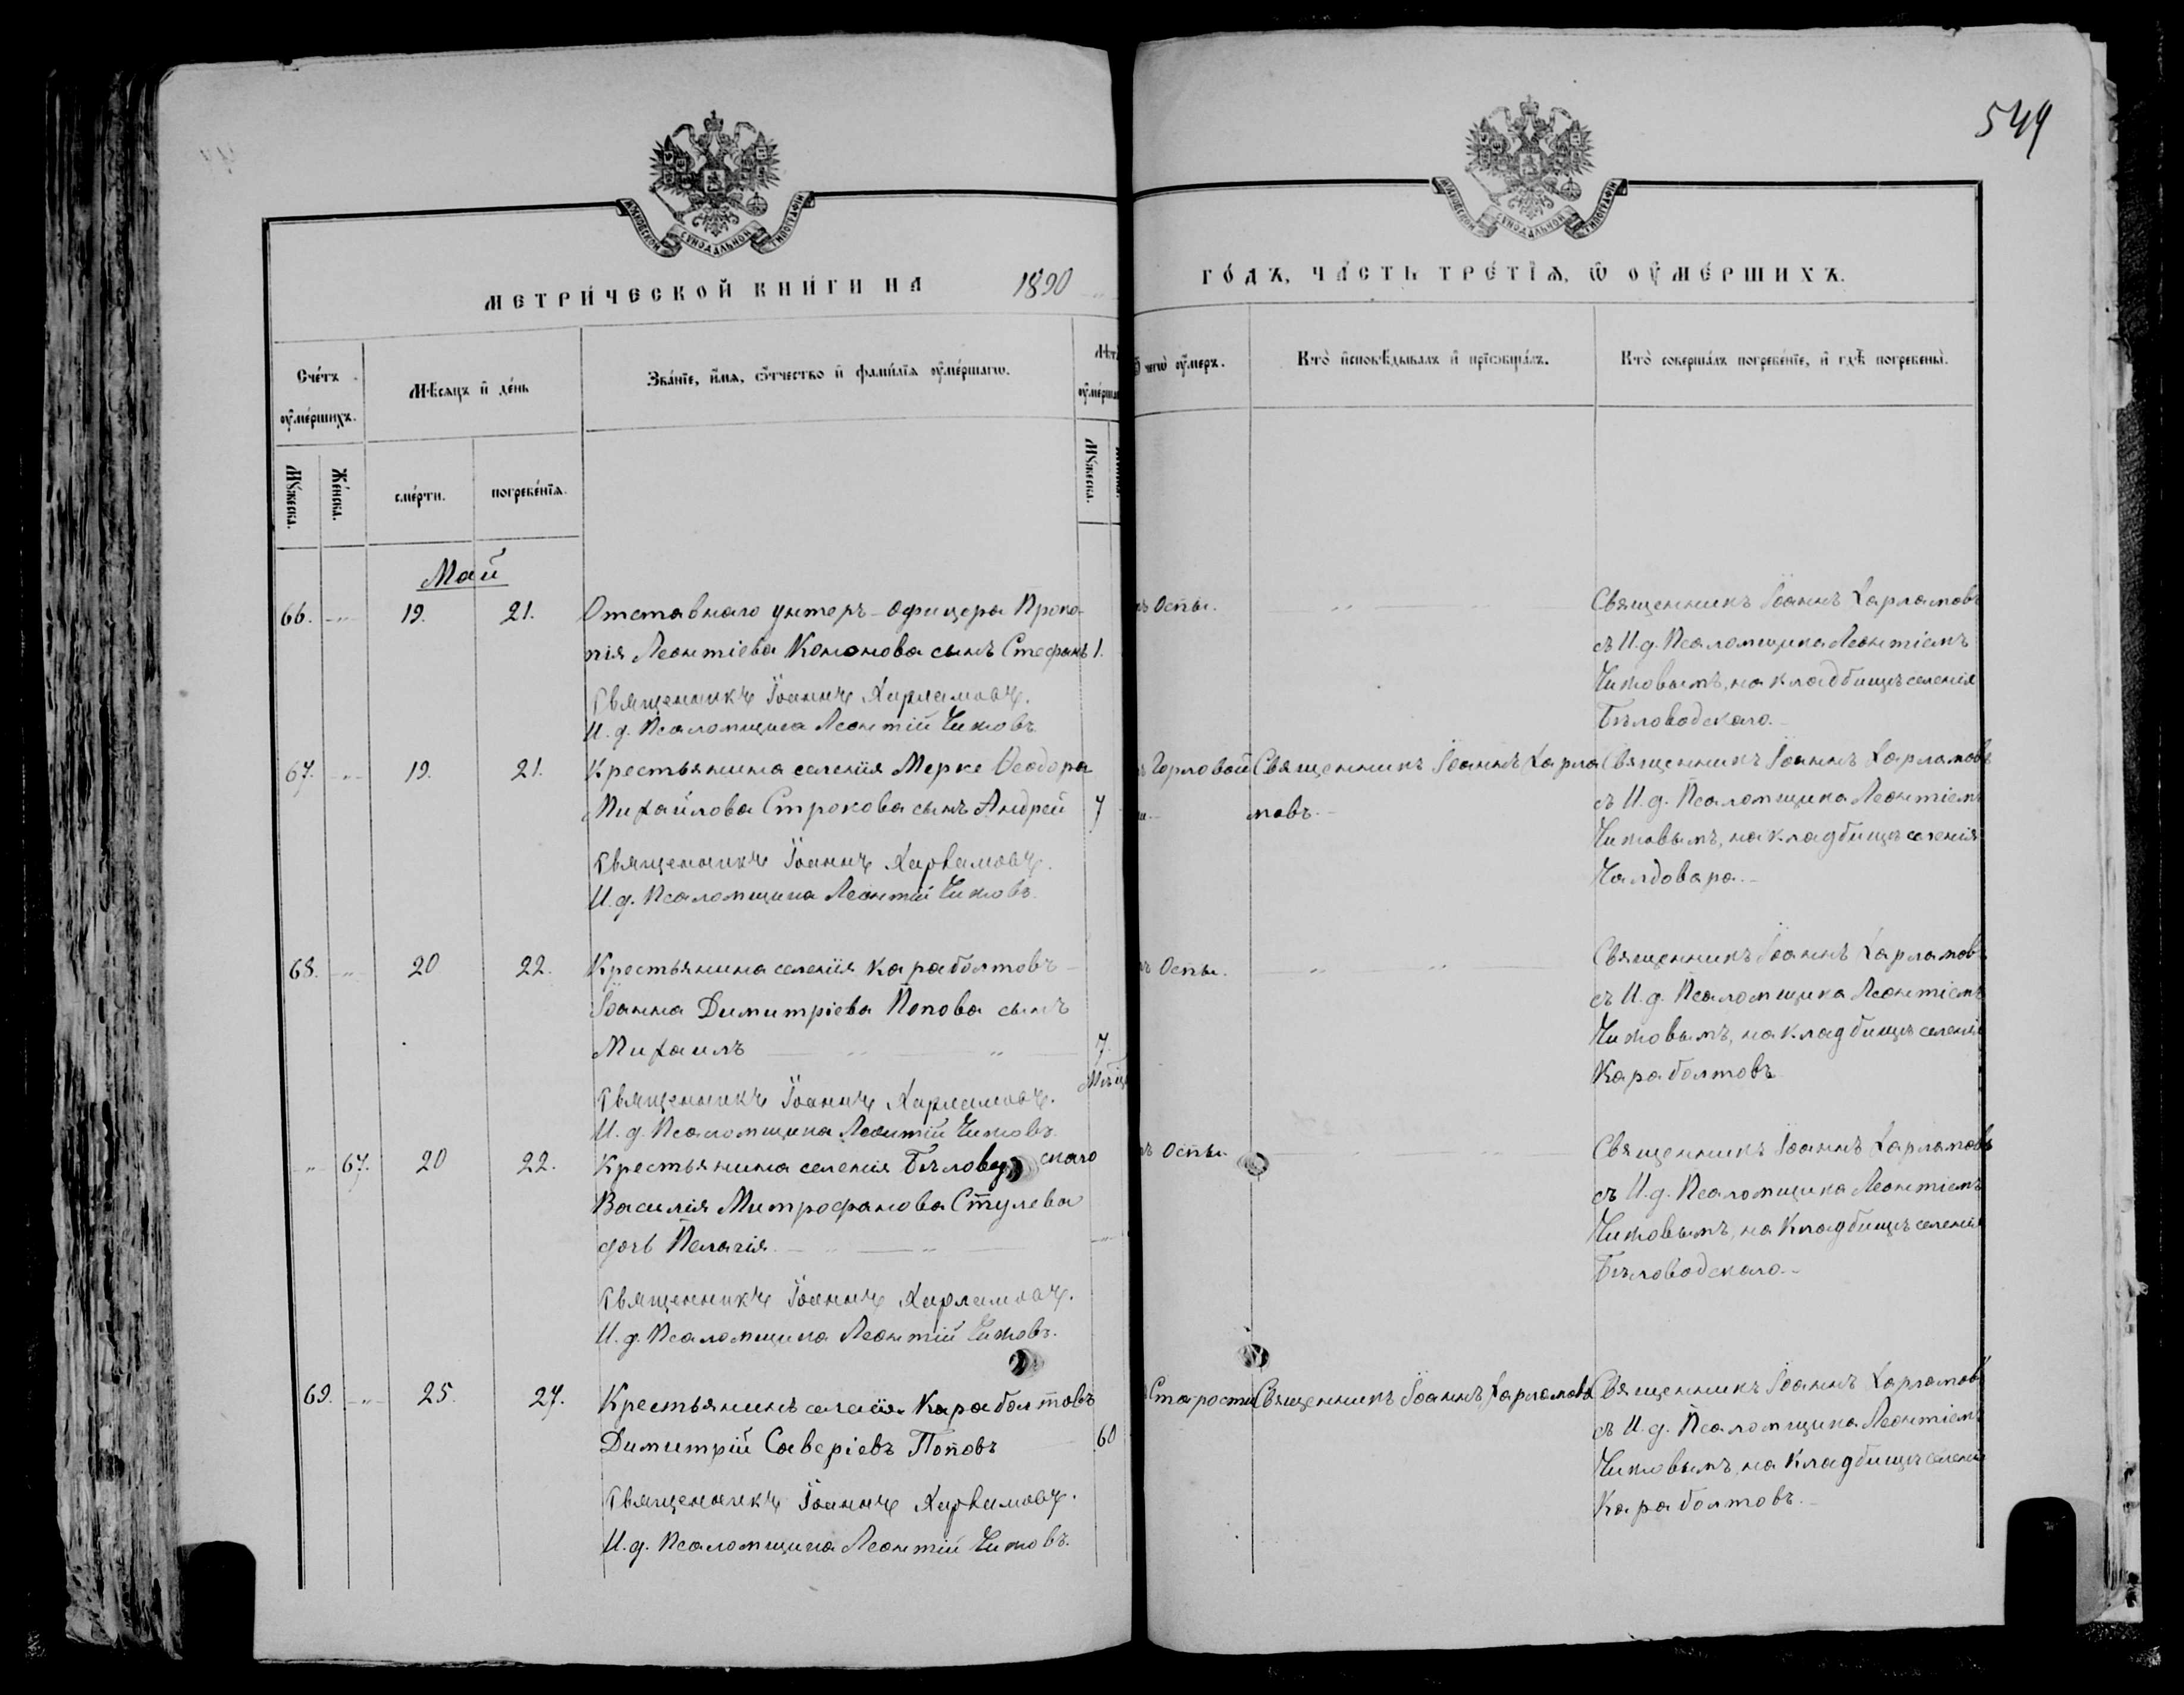 549
МОСКОВСКОЙ СѴНОДАЛЬНОЙ ТИПОГРАФІИ
МОСКОВСКОЙ СѴНОДАЛЬНОЙ ТИПОГРАФІИ
МЕТРИ́ЧЕСКОЙ КНИ́ГИ НА 1890
ГО́ДЪ, ЧА́СТЬ ТРЕ́ТІѦ, Ѿ ОУ҆МЕ́РШИХЪ.
Сче́тъ оу҆ме́ршихъ.
Мꙋ́жеска.
Же́нска.
Мѣ́сяцъ и҆ де́нь
сме́рти.
погребе́нїѧ.
Зва́нїе, и҆́мѧ, ѻ҆́тчество и҆ фами́лїѧ оу҆ме́ршагѡ.
Мꙋ́жеска.
чегѡ̀ оу҆́меръ.
Кто̀ и҆сповѣ́дывалъ и҆ прїѡбща́лъ.
Кто̀ соверша́лъ погребе́нїе, и҆ гдѣ̀ погребены̀.
Май
66. 19. 21. Отставнаго унтеръ-офицера Проко-
пія Леонтіева Кононова сынъ Стефанъ 1.
Священникъ Іоаннъ Харламовъ.
И. д. Псаломщика Леонтій Чижовъ.
Оспы.
Священникъ Іоаннъ Харламовъ
съ И. д. Псаломщика Леонтіемъ
Чижовымъ, на кладбищѣ селенія
Бѣловодскаго.
67. 19. 21. Крестьянина селенія Мерке Ѳеодора
Михайлова Строкова сынъ Андрей 7
Священникъ Іоаннъ Харламовъ.
И. д. Псаломщика Леонтій Чижовъ.
Горловой
Священникъ Іоаннъ Харла
мовъ.
Священникъ Іоаннъ Харламовъ
съ И. д. Псаломщика Леонтіемъ
Чижовымъ, на кладбищѣ селенія
Чалдовара.
68. 20 22. Крестьянина селенія Караболтовъ
Іоанна Димитріева Попова сынъ
Михаилъ 7.
Священникъ Іоаннъ Харламовъ.
И. д. Псаломщика Леонтій Чижовъ.
Оспы.
Священникъ Іоаннъ Харламовъ
съ И. д. Псаломщика Леонтіемъ
Чижовымъ, на кладбищѣ селенія
Караболтовъ
67. 20 22. Крестьянина селенія Бѣловодскаго
Василія Митрофанова Стулева
дочь Пелагія
Священникъ Іоаннъ Харламовъ.
И. д. Псаломщика Леонтій Чижовъ.
Оспы.
Священникъ Іоаннъ Харламовъ
съ И. д. Псаломщика Леонтіемъ
Чижовымъ, на Кладбищѣ селенія
Бѣловодскаго.
69. 25. 27. Крестьянинъ селенія Караболтовъ
Димитрій Саверіевъ Поповъ 60
Священникъ Іоаннъ Харламовъ.
И. д. Псаломщика Леонтій Чижовъ.
Старости
Священникъ Іоаннъ Харламовъ
Священникъ Іоаннъ Харламовъ
съ И. д. Псаломщика Леонтіемъ
Чижовымъ, на Кладбищѣ селенія
Караболтовъ.